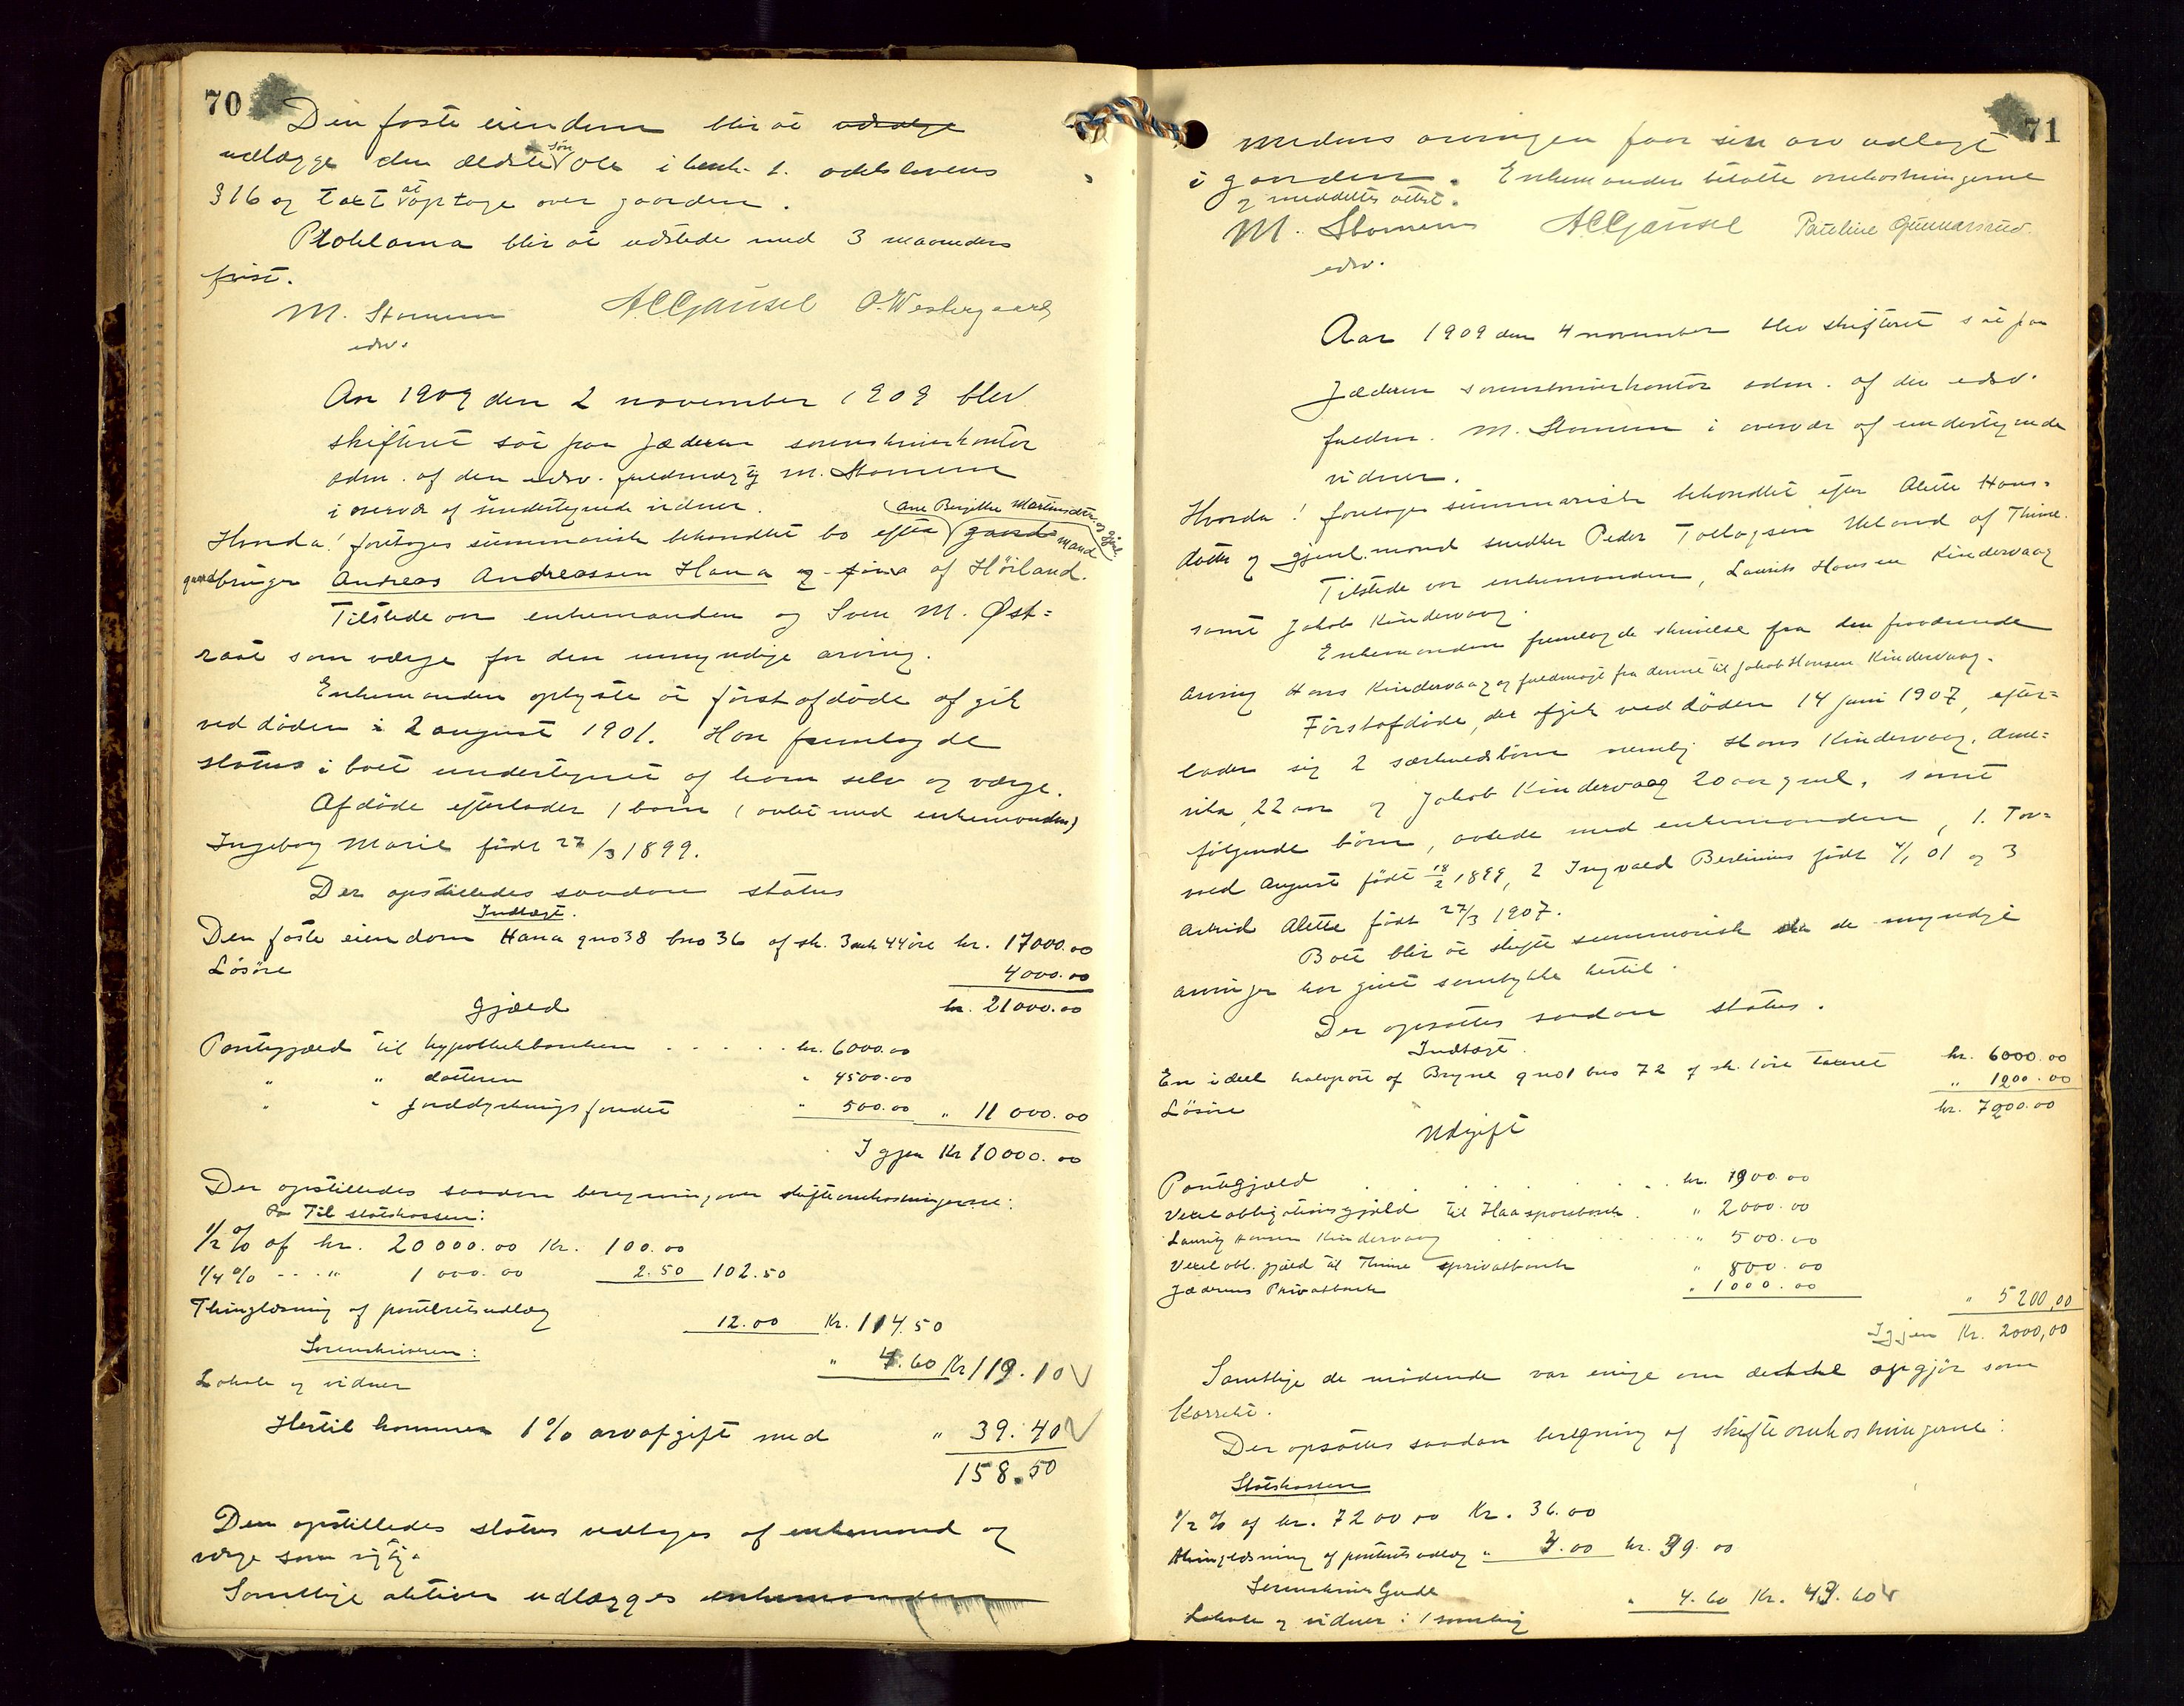 70
Den faste eiendom blir at udlægge
udlægge den ældste søn Ole i henh. t. odelslovens
§ 16 og taxt at optage over gaarden.
Proklama blir at udstede med 3 maaneders
frist.
M. Stornem ACGausel O. Westergaard
edsv.
Aar 1909 den 2 november 1909 blev
skifteret sat paa Jæderen sorenskriverkontor
adm. af den edsv. fuldmægtig M. Stornem
i overvær af undertegnede vidner.
Hvorda! foretoges summarisk behandlet bo efter Ane Birgitte Martinsdtr. og gjenl. mand
gaardbruger Andreas Andreassen Hana af Høiland.
Tilstede var enkemanden og Sven M. Øst=
raat som værge for den umyndige arving.
Enkemanden oplyste at førstafdøde afgik
ved døden 2 august 1901. Han fremlagde
status i boet undertegnet af ham selv og værge.
Afdøde efterlader 1 barn (avlet med enkemanden)
Ingeborg Marie født 27/3 1899.
Der opstilledes saadan status
Indtægt.
Den faste eiendom Hana gno 38 bno 36 af sk. 3 mk 44 øre kr. 17000.00
Løsøre 4000.00
kr. 21000.00
Gjæld
Pantegjæld til hypothekbanken . . . . . kr. 6000.00
" " datteren " 4500.00
" " jorddyrkningsfondet " 500.00 " 11000.00
Igjen Kr 10000.00
Der opstilledes saadan beregning over skifteomkostningerne:
Til statskassen:
1/2 % af kr. 20000.00 Kr. 100.00
1/4 % - - " 1000.00 2.50 102.50
Thinglæsning af panteretsudlæg 12.00 Kr. 114.50
Sorenskriveren:
Lokale og vidner " 4.60 Kr 119.10
Hertil kommer 1% arvafgift med " 39.40
158.50
Den opstilledes status vedtoges af enkemand og
værge som rigtig.
Samtlige aktiver udlægges enkemanden
71
medens arvingen faar sin arv udlagt
i gaarden. Enkemanden betalte omkostningerne
og meddeltes attest.
M. Stornem ACGausel Pauline Gunnarsrud
edsv.
Aar 1909 den 4 november blev skifteret sat paa
Jæderen sorenskriverkontor adm. af den edsv.
fuldm. M. Stornem i overvær af undertegnede
vidner.
Hvorda! foretoges summarisk behandlet efter Alette Hans-
datter og gjenl. mand snedker Peder Tollagsen Ueland af Thime.
Tilstede var enkemanden, Laurits Hansen Kindervaag
samt Jakob Kindervaag.
Enkemanden fremlagde skrivelse fra den fraværende
arving Hans Kindervaag og fuldmagt fra denne til Jakob Hansen Kindervaag.
Førstafdøde, der afgik ved døden 14 juni 1907, efter=
lader sig 2 særkuldsbørn nemlig Hans Kindervaag, Ame=
rika, 22 aar og Jakob Kindervaag 20 aar gml., samt
følgende børn, avlede med enkemanden, 1. Tor=
vald August født 18/2 1899, 2 Ingvald Berlinius født 4/1 01 og 3
Astrid Alette født 27/3 1907.
Boet blir at skifte summarisk da de myndige
arvinger har givet samtykke hertil.
Der opsattes saadan status.
Indtægt.
En ideel halvpart af Bryne gno 1 bno 72 af sk. 1 øre taxeret kr. 6000.00
Løsøre " 1200.00
kr. 7200.00
Udgift
Pantegjæld . . . . . . kr. 900.00
Vexelobligationsgjæld til Haa sparebank . " 2000.00
Laurits Hansen Kindervaag " 500.00
Vexelobl. gjæld til Thime privatbank " 800.00
Jæderens Privatbank " 1000.00 " 5200,00
Igjen Kr. 2000,00
Samtlige de mødende var enige om dette opgjør som
korrekt.
Der opsattes saadan beregning af skifteomkostningerne:
Statskassen
1/2 % af kr. 7200.00 Kr. 36.00
Thinglæsning af panteretsudlæg " 3.00 kr. 39.00
Sorenskriver Gude
Lokale og vidner i 1 samling " 4.60 Kr. 43.60